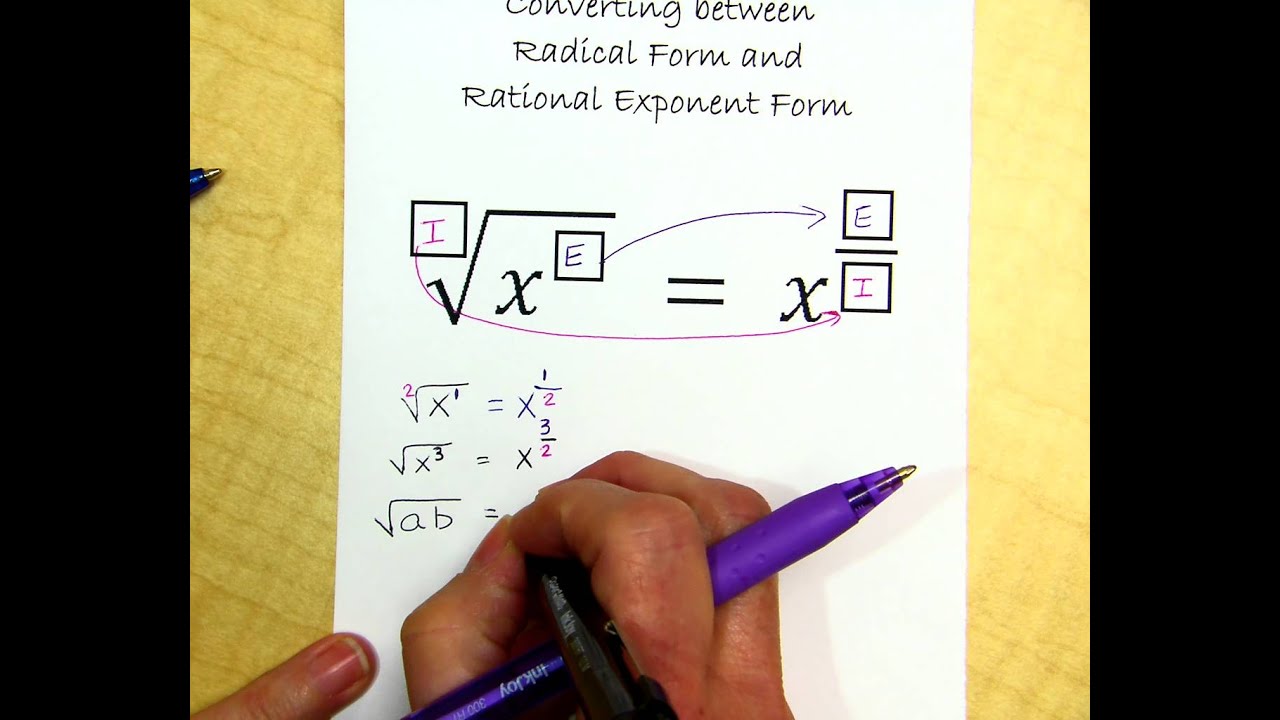 Converting between
Radical Form and
Rational Exponent Form
I√x^E = x^(E/I)
²√x¹ = x^(1/2)
√x³ = x^(3/2)
√ab =
InkJoy
300 RT